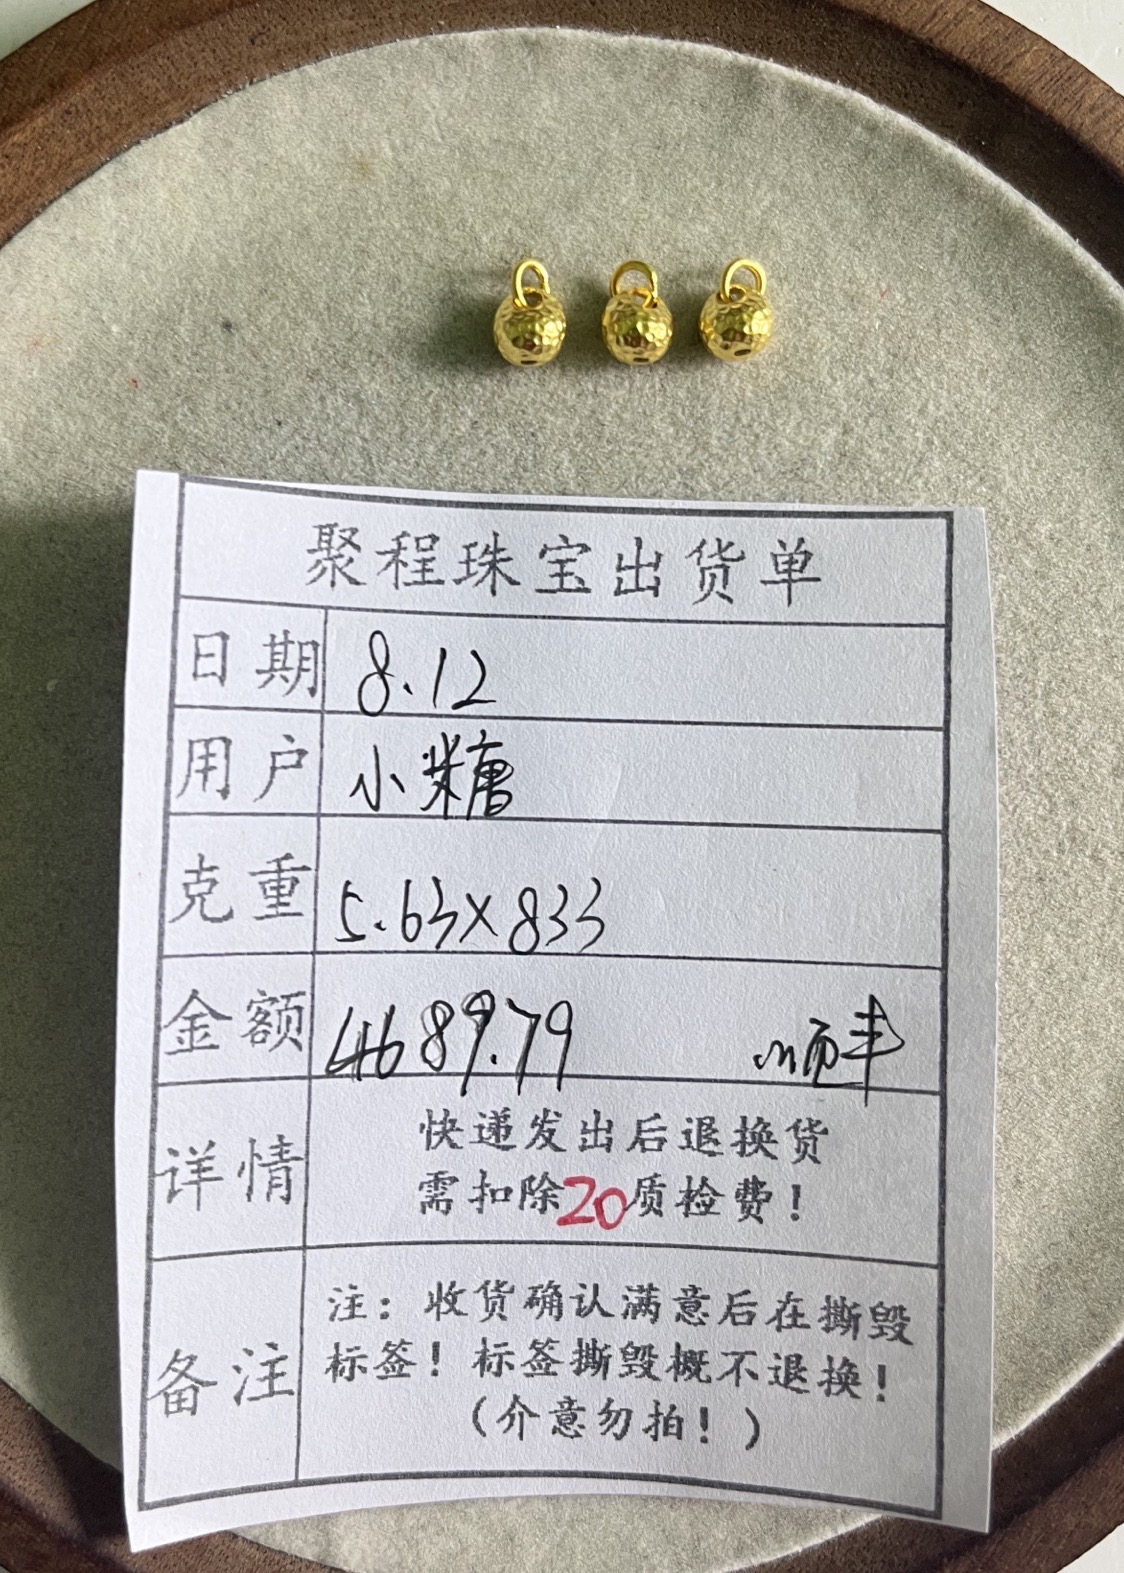 聚程珠宝出货单
日期 8.12
用户 小糖
克重 5.63×833
金额 4689.79 顺丰
详情 快递发出后退换货
需扣除20质检费！
备注 注：收货确认满意后在撕毁
标签！标签撕毁概不退换！
（介意勿拍！）